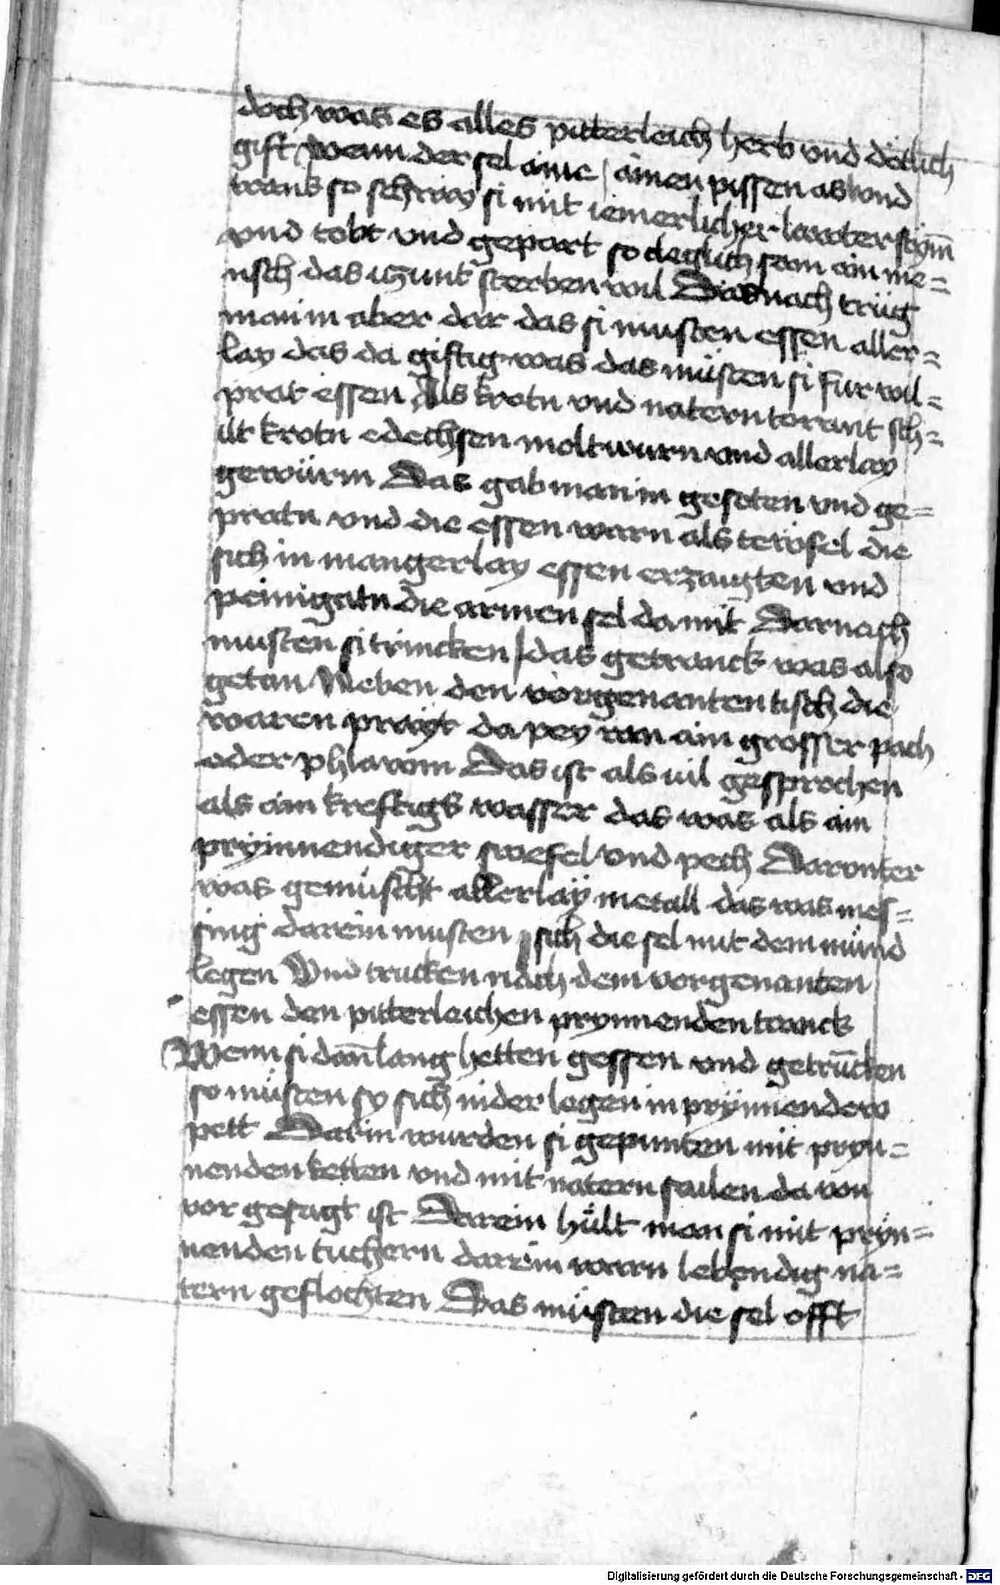 doch was es alles pitterleich herb vnd dötlich
gift Wenn der sel aine / ainen pissen as vnd
wans so schray si mit iemerlicher lawter stym̄
vnd tobt vnd gepart so cleglich sam ain me=
nsch das iczunt sterben wil Darnach trug
man in aber dar das si musten essen aller=
lay das da giftig was das müsten si fur wil=
prat essen Als krotn vnd natern torant sch=
ilt krotn edechsen moltwurn vnd allerlay
gewürm Das gab man in gesoten vnd ge=
pratn vnd die essen warn als tewfel die
sich in mangerlay essen erzaugten vnd
peinigatn die armen sel da mit Darnach
musten si trincken / das getranck was also
getan Neben den vorgenanten tisch die
waren prayt da pey ran ain grosser pach
oder phlawm Das ist als uil gesprochen
als ain kreftigs wasser das was als ain
prynnendiger swefel vnd pech Darvnter
was gemüscht allerlay metall das was mes=
sing darein musten sich die sel mit dem mund
legen Vnd trucken nach dem vorgenanten
essen den pitterleichen prynnenden tranck
Wenn si dan̄ lang hetten gessen vnd getrūcken
so müsten sy sich nider legen in prynnendew
pett Darin wurden si gepunten mit pryn=
nenden ketten vnd mit natern sailen da von
vor gesagt ist Darein hült man si mit pryn=
nenden tuchern darein warn lebendig na=
tern geflochten Das müsten die sel offt
Digitalisierung gefördert durch die Deutsche Forschungsgemeinschaft - DFG